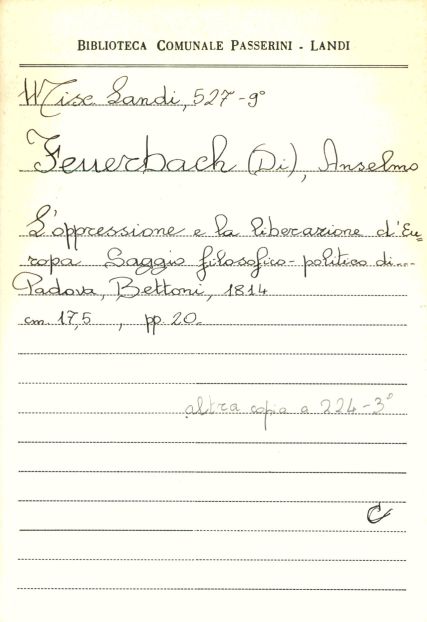 BIBLIOTECA COMUNALE PASSERINI - LANDI
Misc. Landi, 527-9°
Feuerbach (Di), Anselmo
L'oppressione e la liberazione d'Eu=
ropa Saggio filosofico-politico di...
Padova, Bettoni, 1814
cm. 17,5 , pp. 20.
altra copia a 224-3°
C